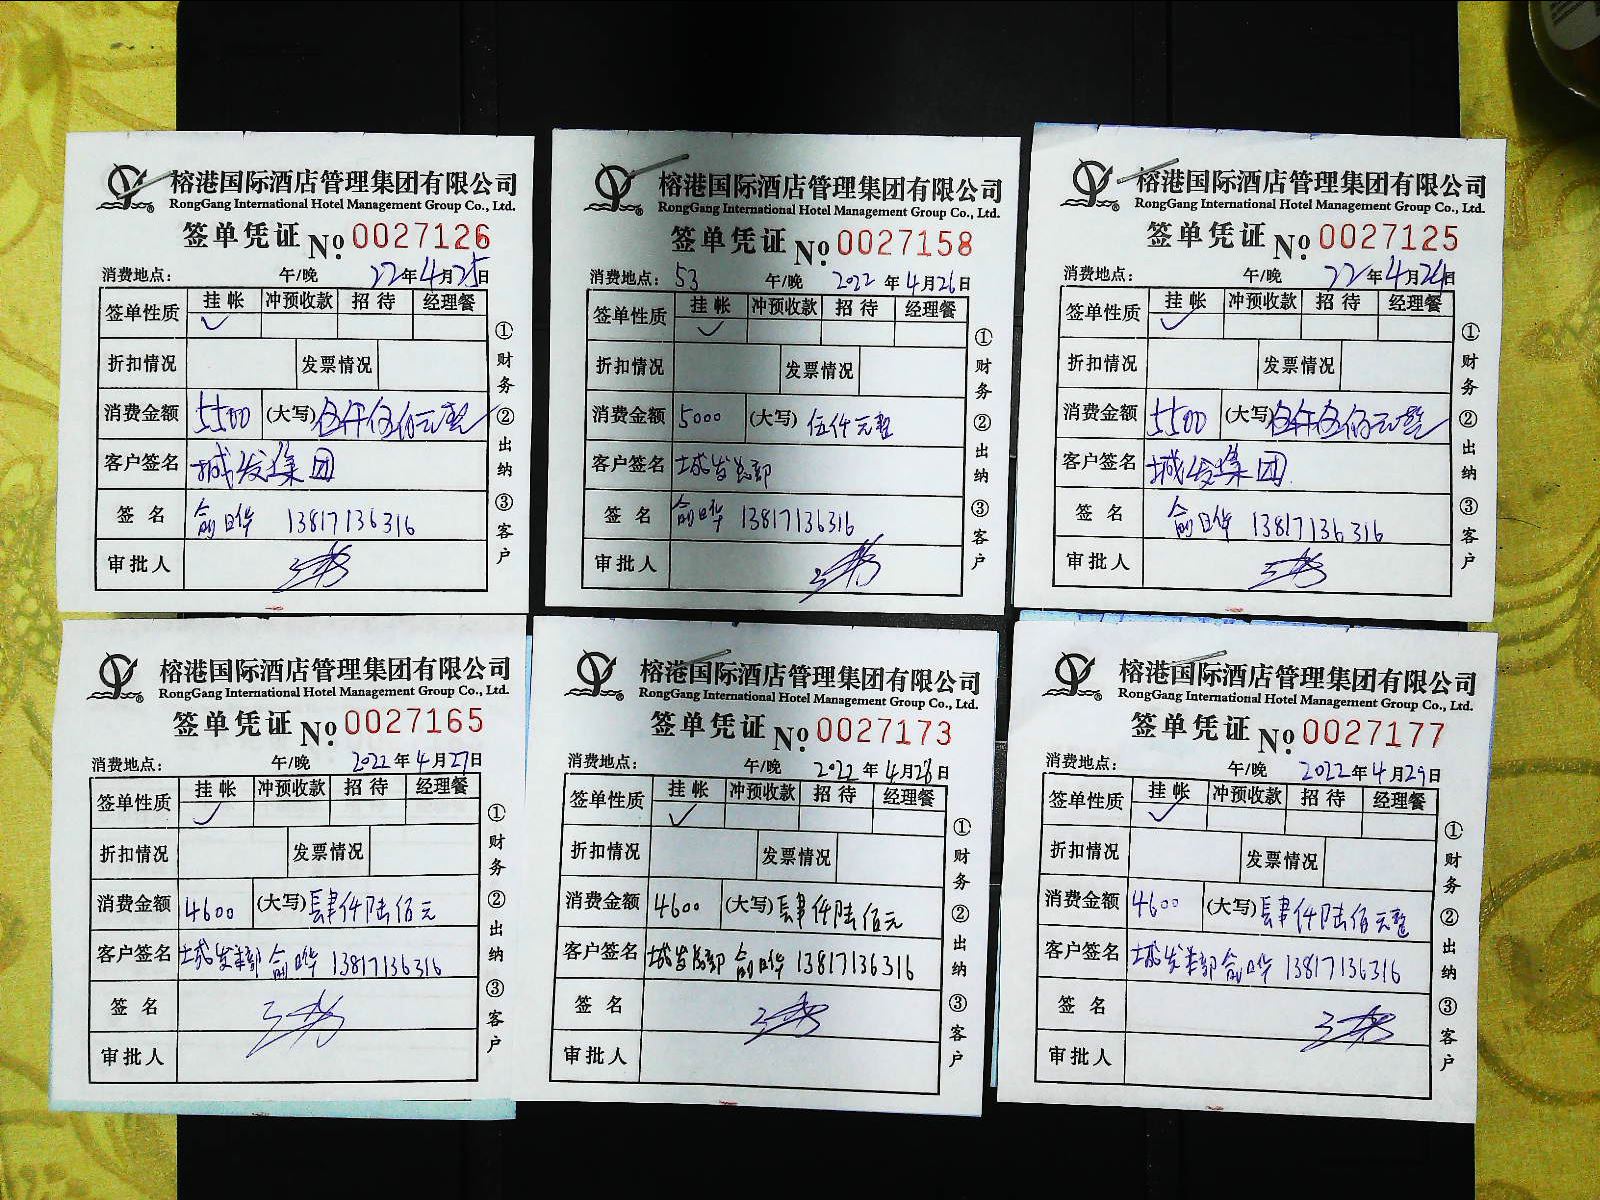 榕港国际酒店管理集团有限公司
RongGang International Hotel Management Group Co., Ltd.
签单凭证 No. 0027126
消费地点: 午/晚 22年4月25日
签单性质 挂帐 冲预收款 招待 经理餐
✓
折扣情况 发票情况
消费金额 5500 (大写) 伍仟伍佰元整
客户签名 城发集团
签名 俞日华 13817136316
审批人
①财务 ②出纳 ③客户
榕港国际酒店管理集团有限公司
RongGang International Hotel Management Group Co., Ltd.
签单凭证 No. 0027158
消费地点: 53 午/晚 2022年4月26日
签单性质 挂帐 冲预收款 招待 经理餐
✓
折扣情况 发票情况
消费金额 5000 (大写) 伍仟元整
客户签名 城发总部
签名 俞日华 13817136316
审批人
①财务 ②出纳 ③客户
榕港国际酒店管理集团有限公司
RongGang International Hotel Management Group Co., Ltd.
签单凭证 No. 0027125
消费地点: 午/晚 22年4月24日
签单性质 挂帐 冲预收款 招待 经理餐
✓
折扣情况 发票情况
消费金额 5500 (大写) 伍仟伍佰元整
客户签名 城发集团
签名 俞日华 13817136316
审批人
①财务 ②出纳 ③客户
榕港国际酒店管理集团有限公司
RongGang International Hotel Management Group Co., Ltd.
签单凭证 No. 0027165
消费地点: 午/晚 2022年4月27日
签单性质 挂帐 冲预收款 招待 经理餐
✓
折扣情况 发票情况
消费金额 4600 (大写) 肆仟陆佰元
客户签名 城发总部 俞日华 13817136316
签名
审批人
①财务 ②出纳 ③客户
榕港国际酒店管理集团有限公司
RongGang International Hotel Management Group Co., Ltd.
签单凭证 No. 0027173
消费地点: 午/晚 2022年4月28日
签单性质 挂帐 冲预收款 招待 经理餐
✓
折扣情况 发票情况
消费金额 4600 (大写) 肆仟陆佰元
客户签名 城发总部 俞日华 13817136316
签名
审批人
①财务 ②出纳 ③客户
榕港国际酒店管理集团有限公司
RongGang International Hotel Management Group Co., Ltd.
签单凭证 No. 0027177
消费地点: 午/晚 2022年4月29日
签单性质 挂帐 冲预收款 招待 经理餐
✓
折扣情况 发票情况
消费金额 4600 (大写) 肆仟陆佰元整
客户签名 城发总部 俞日华 13817136316
签名
审批人
①财务 ②出纳 ③客户